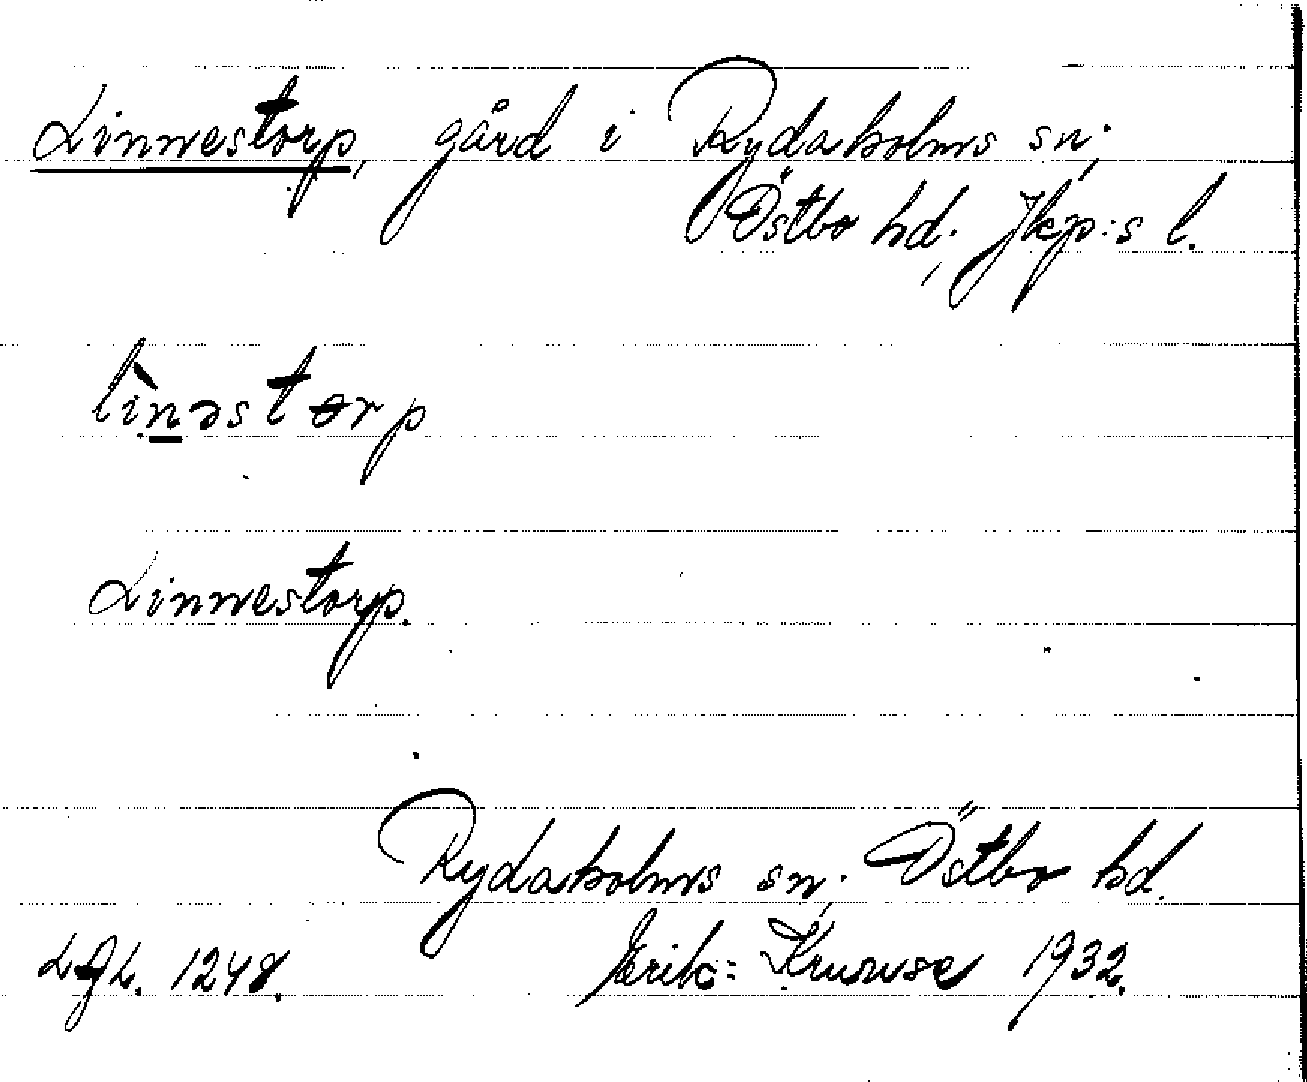 Linnestorp, gård i Rydaholms sn;
Östbo hd; Jkp:s l.
lìnəstɵrp
Linnestorp.
Rydaholms sn; Östbo hd.
LGL. 1248. Erik: Kruuse 1932.